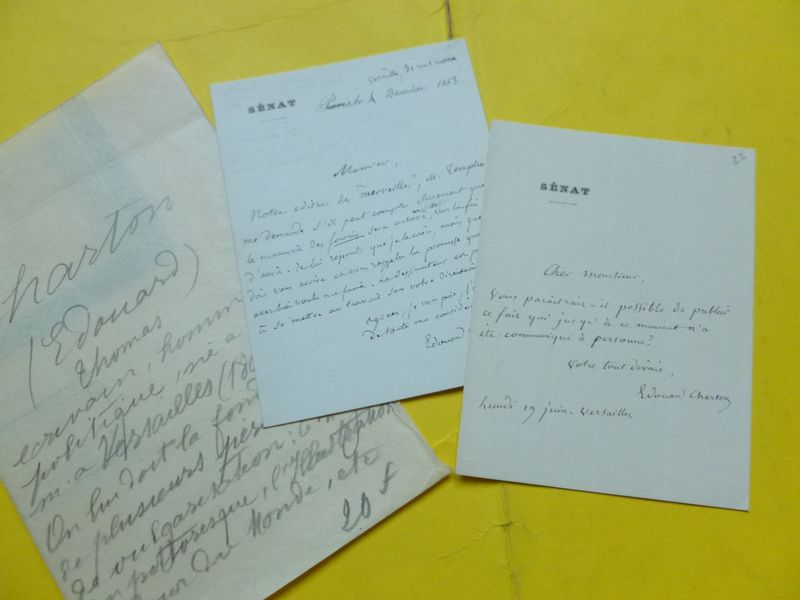 Charton
(Edouard)
Thomas
écrivain, homm
politique, né à
m. à Versailles (18
On lui doit la fond
de plusieurs
de vulgarisation: le
pittoresque, l'Illustration
du Monde, etc
20 f
SÉNAT
Versailles,
4 Décembre 1883
Monsieur,
Notre éditeur des "merveilles", M. Templier
me demande s'il peut compter sûrement que
le manuscrit des fourmis sera achevé vers la fin
d'avril. Je lui réponds que je le crois, mais que
dois vous écrire et vous rappeler la promesse que
avez bien voulu me faire. Le dessinateur est
à se mettre au travail sous votre direction
Agréez, je vous prie,
de toute ma considé
Edouard
22
SÉNAT
Cher monsieur,
Vous paraîtrait-il possible de publier
ce fait qui jusqu'à ce moment n'a
été communiqué à personne?
Votre tout dévoué,
Edouard Charton
Lundi 19 juin. Versailles